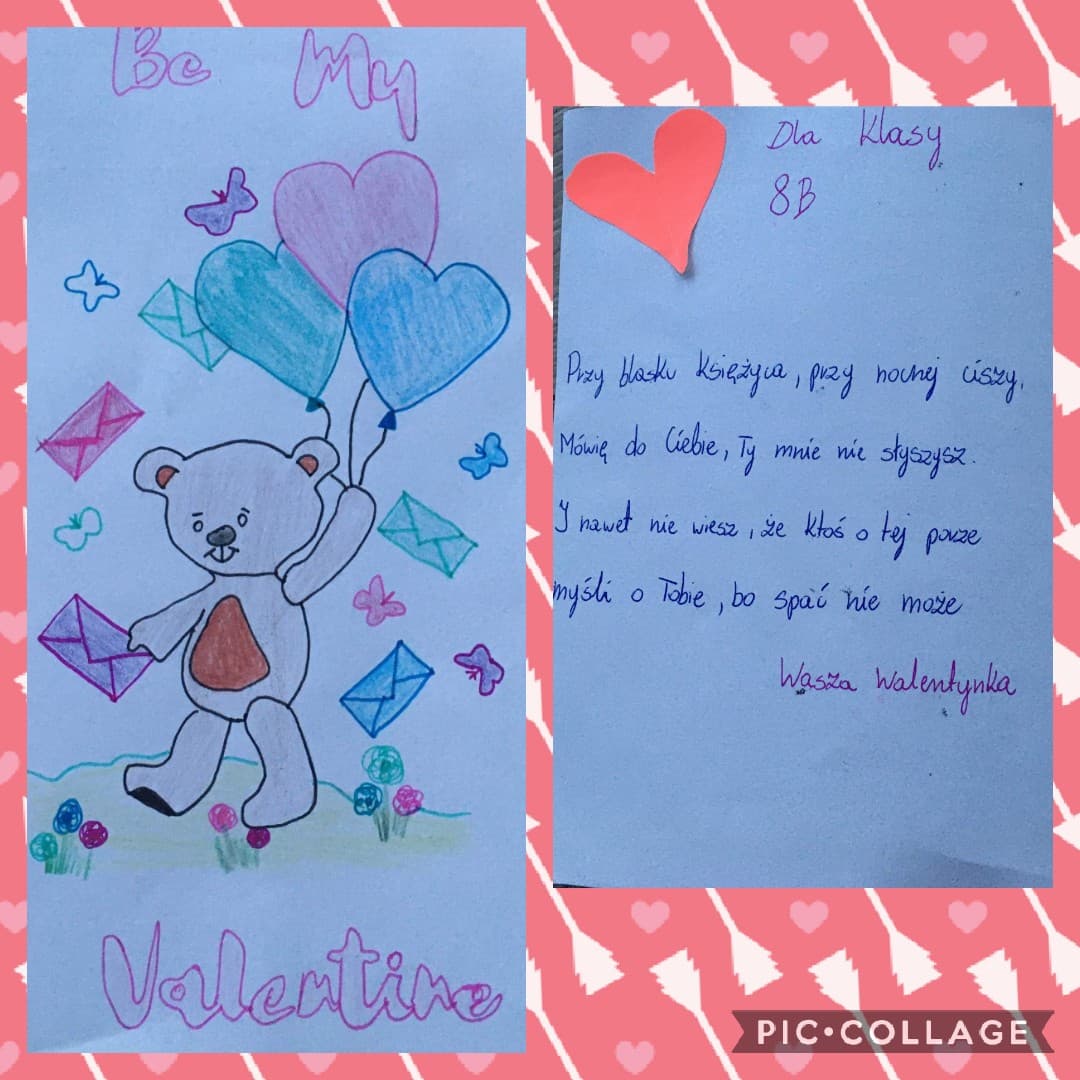 Be My
Valentine
Dla Klasy
8B
Przy blasku Księżyca, przy nocnej ciszy,
Mówię do Ciebie, Ty mnie nie słyszysz.
I nawet nie wiesz, że ktoś o tej porze
myśli o Tobie, bo spać nie może
Wasza Walentynka
PIC•COLLAGE